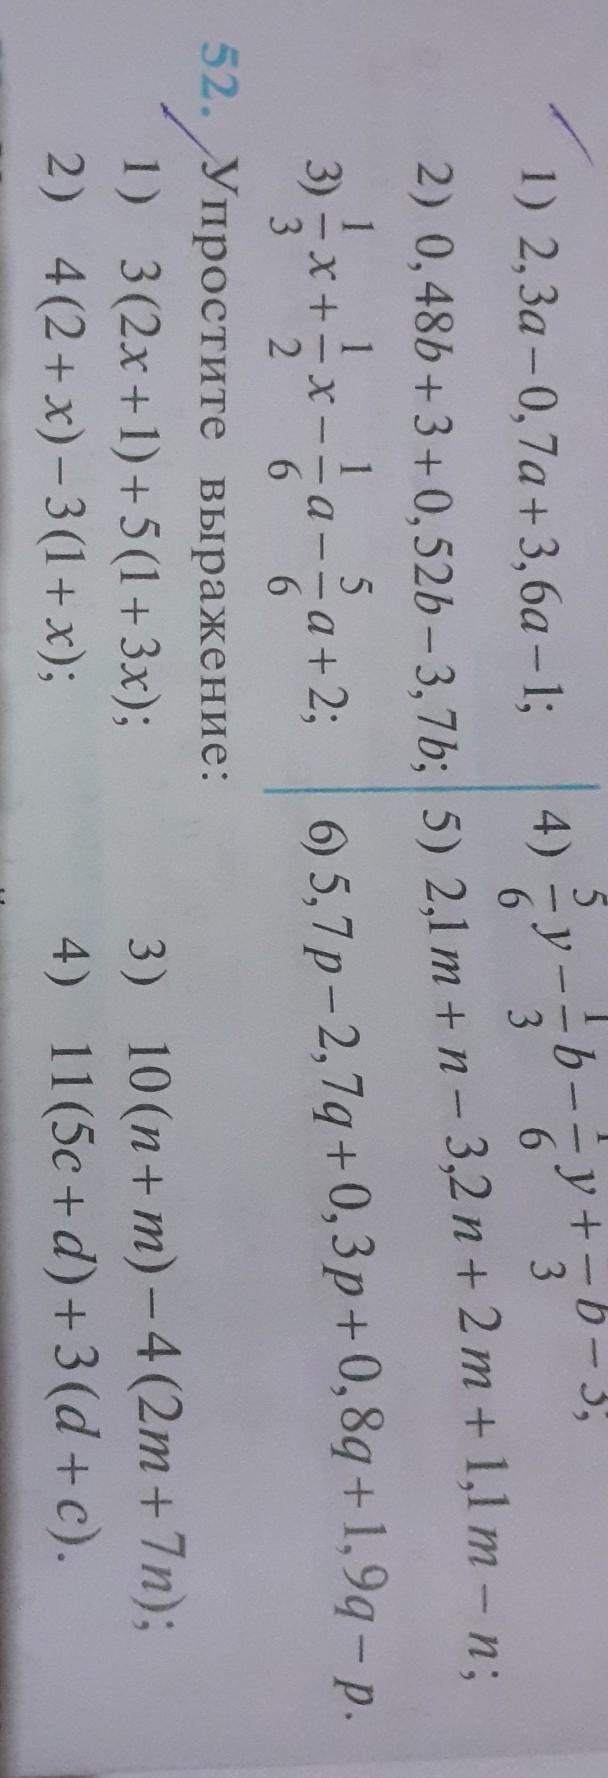 1) 2,3a−0,7a+3,6a−1;
2) 0,48b+3+0,52b−3,7b;
3) 1/3 x + 1/2 x − 1/6 a − 5/6 a + 2;
4) 5/6 y − 1/3 b − 1/6 y + /3 b − 3;
5) 2,1m+n−3,2n+2m+1,1m−n;
6) 5,7p−2,7q+0,3p+0,8q+1,9q−p.
52. Упростите выражение:
1) 3(2x+1)+5(1+3x);
2) 4(2+x)−3(1+x);
3) 10(n+m)−4(2m+7n);
4) 11(5c+d)+3(d+c).